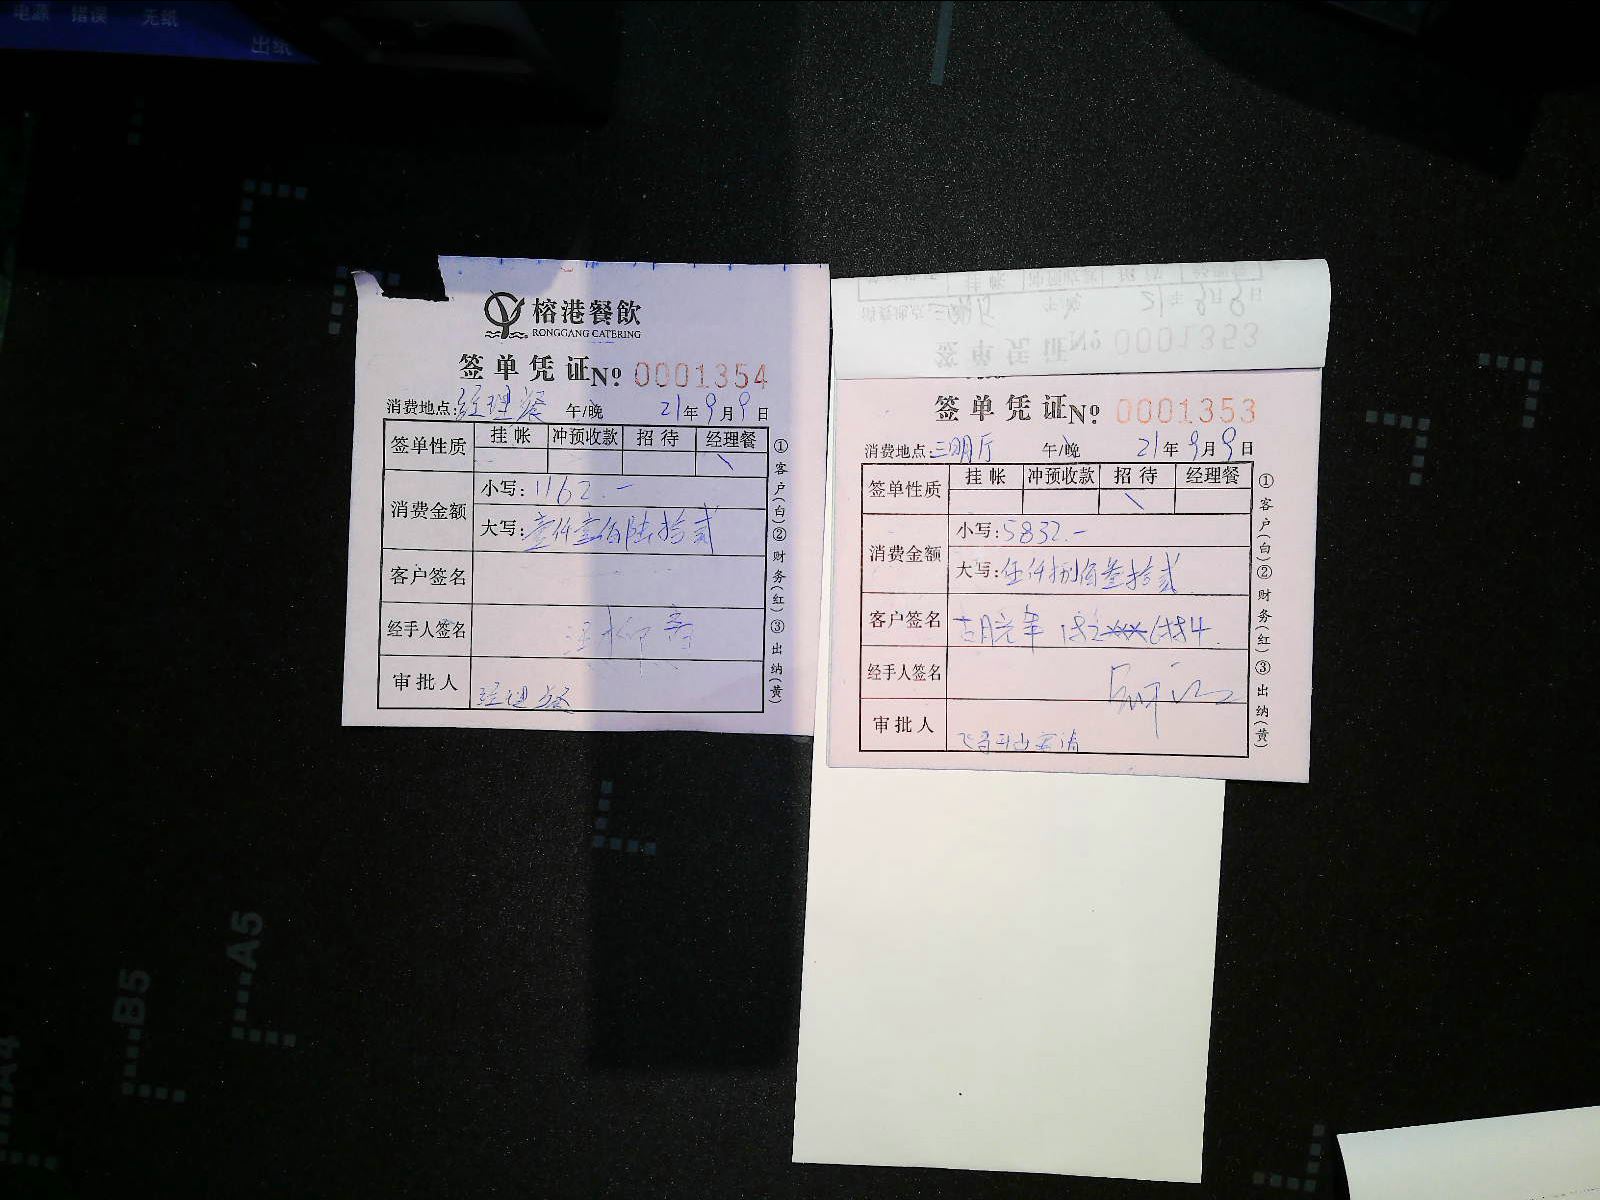 电源 错误 无纸
出纸
榕港餐飲
RONGGANG CATERING
签单凭证№ 0001354
消费地点:经理餐 午/晚 21年9月9日
签单性质 挂帐 冲预收款 招待 经理餐
消费金额 小写:1162.-
大写:壹仟壹佰陆拾贰
客户签名
经手人签名
审批人 经理餐
①客户(白)②财务(红)③出纳(黄)
签单凭证№ 0001353
消费地点:三明厅 午/晚 21年9月9日
签单性质 挂帐 冲预收款 招待 经理餐
消费金额 小写:5832.-
大写:伍仟捌佰叁拾贰
客户签名
经手人签名
审批人
①客户(白)②财务(红)③出纳(黄)
A5
B5
A4